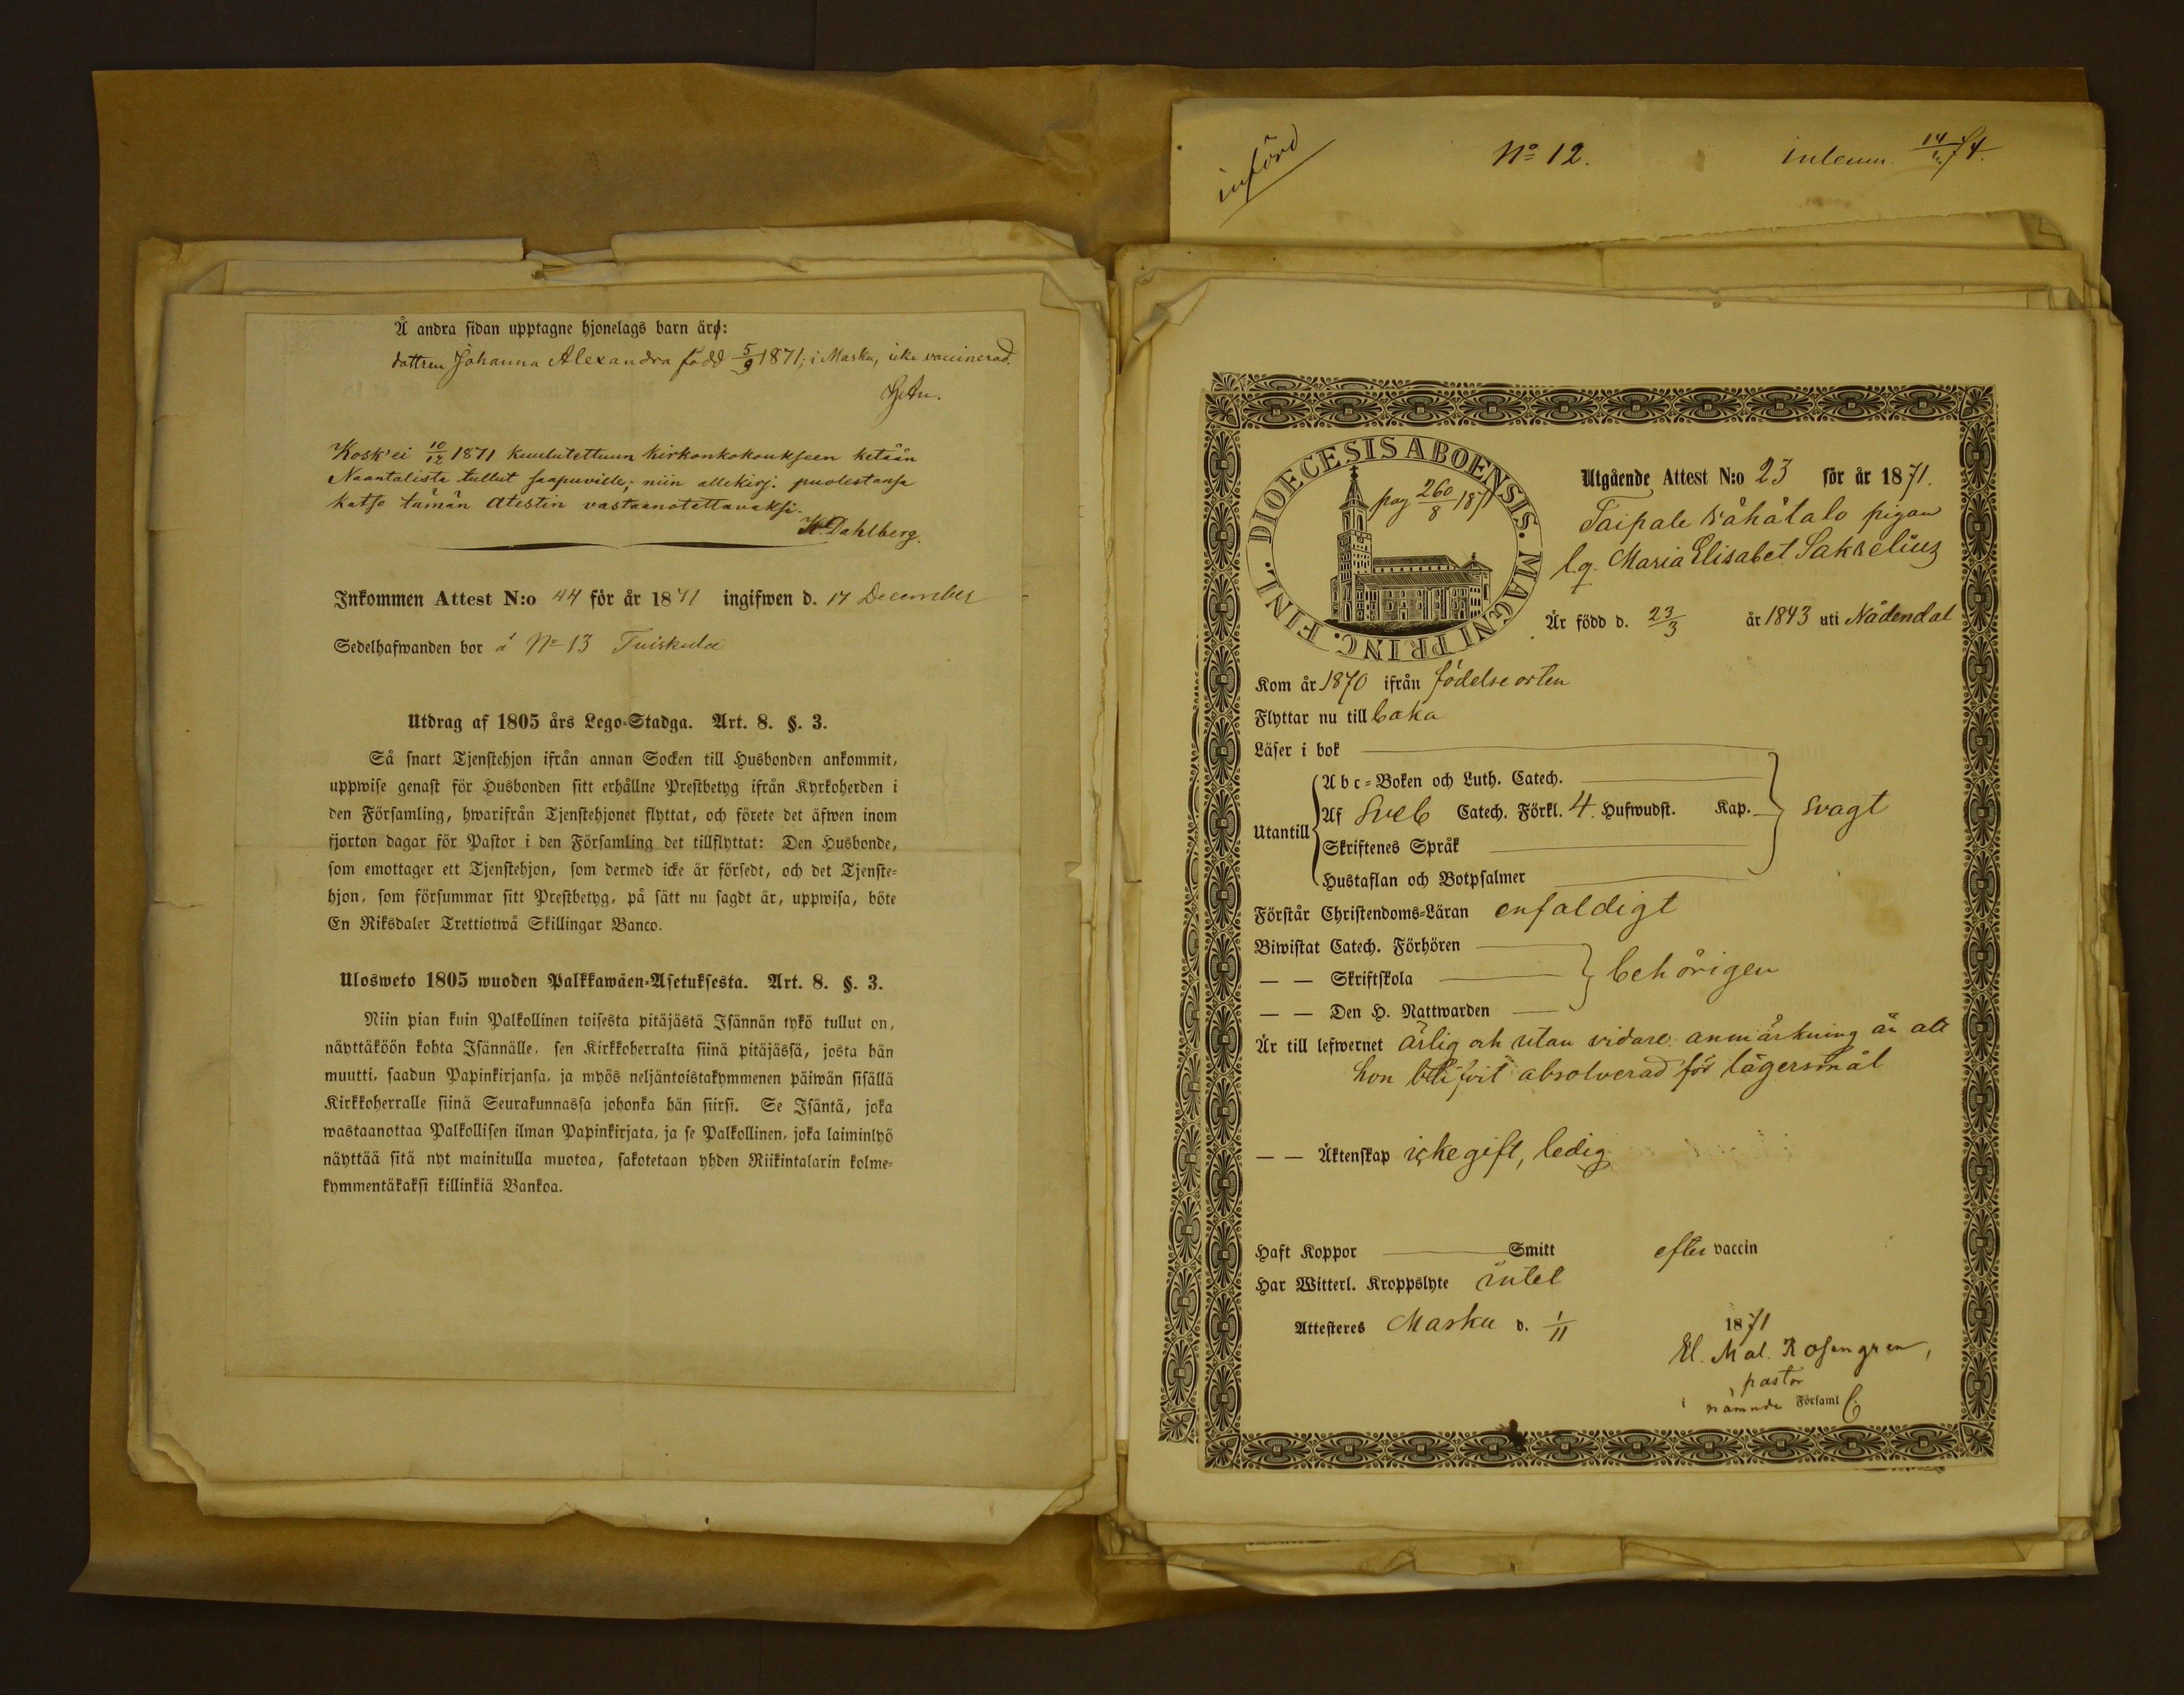 Å andra sidan upptagne hjonelags barn är:
dottren Johanna Alexandra född 5/9 1871; i Masku, icke vaccinerad.
Kosk'ei 10/12 1871 kuulutettuun kirkonkokoukseen ketään
Naantalista tullut saapuville; niin allekirj. puolestansa
katso tämän atestin vastaanotettavaksi.
K. Dahlberg.
Inkommen Attest N:o 44 för år 1871 ingifwen d. 17 December
Sedelhafwanden bor å No 13 Tuiskula
Utdrag af 1805 års Lego-Stadga. Art. 8. §. 3.
Så snart Tjenstehjon ifrån annan Socken till Husbonden ankommit,
uppwise genast för Husbonden sitt erhållne Prestbetyg ifrån Kyrkoherden i
den Församling, hwarifrån Tjenstehjonet flyttat, och förete det äfwen inom
fjorton dagar för Pastor i den Församling det tillflyttat: Den Husbonde,
som emottager ett Tjenstehjon, som dermed icke är försedt, och det Tjenste-
hjon, som försummar sitt Prestbetyg, på sätt nu sagdt är, uppwisa, böte
En Riksdaler Trettiotwå Skillingar Banco.
Ulosweto 1805 wuoden Palkkawäen-Asetuksesta. Art. 8. §. 3.
Niin pian kuin Palkollinen toisesta pitäjästä Isännän tykö tullut on,
näyttäköön kohta Isännälle, sen Kirkkoherralta siinä pitäjässä, josta hän
muutti, saadun Papinkirjansa, ja myös neljäntoistakymmenen päiwän sisällä
Kirkkoherralle siinä Seurakunnassa johonka hän siirsi. Se Isäntä, joka
wastaanottaa Palkollisen ilman Papinkirjata, ja se Palkollinen, joka laiminlyö
näyttää sitä nyt mainitulla muotoa, sakotetaan yhden Riikintalarin kolme-
kymmentäkaksi killinkiä Bankoa.
införd
No 12.
inlemn. 74.
DIOECESIS ABOENSIS. MAGNI PRINC. FINL.
pag 260/8 1871
Utgående Attest N:o 23 för år 1871.
Taipale Wähätalo pigan
lq. Maria Elisabet Sakrelius
Är född d. 23/3 år 1843 uti Nådendal
Kom år 1870 ifrån födelseorten
Flyttar nu till baka
Läser i bok
Utantill
Abc-Boken och Luth. Catech.
Af Sveb Catech. Förkl. 4. Hufwudst. Kap. svagt
Skriftenes Språk
Hustaflan och Botpsalmer
Förstår Christendoms-Läran enfaldigt
Biwistat Catech. Förhören
— — Skriftskola behörigen
— — Den H. Nattwarden
Är till lefwernet ärlig och utan vidare anmärkning än att
hon blifvit absolverad för lägersmål
— — Äktenskap icke gift, ledig
Haft Koppor Smitt efter vaccin
Har Witterl. Kroppslyte intet
Attesteres Masku d. 1/11 1871
Mal. Rosengren,
pastor
i nämnde Församl